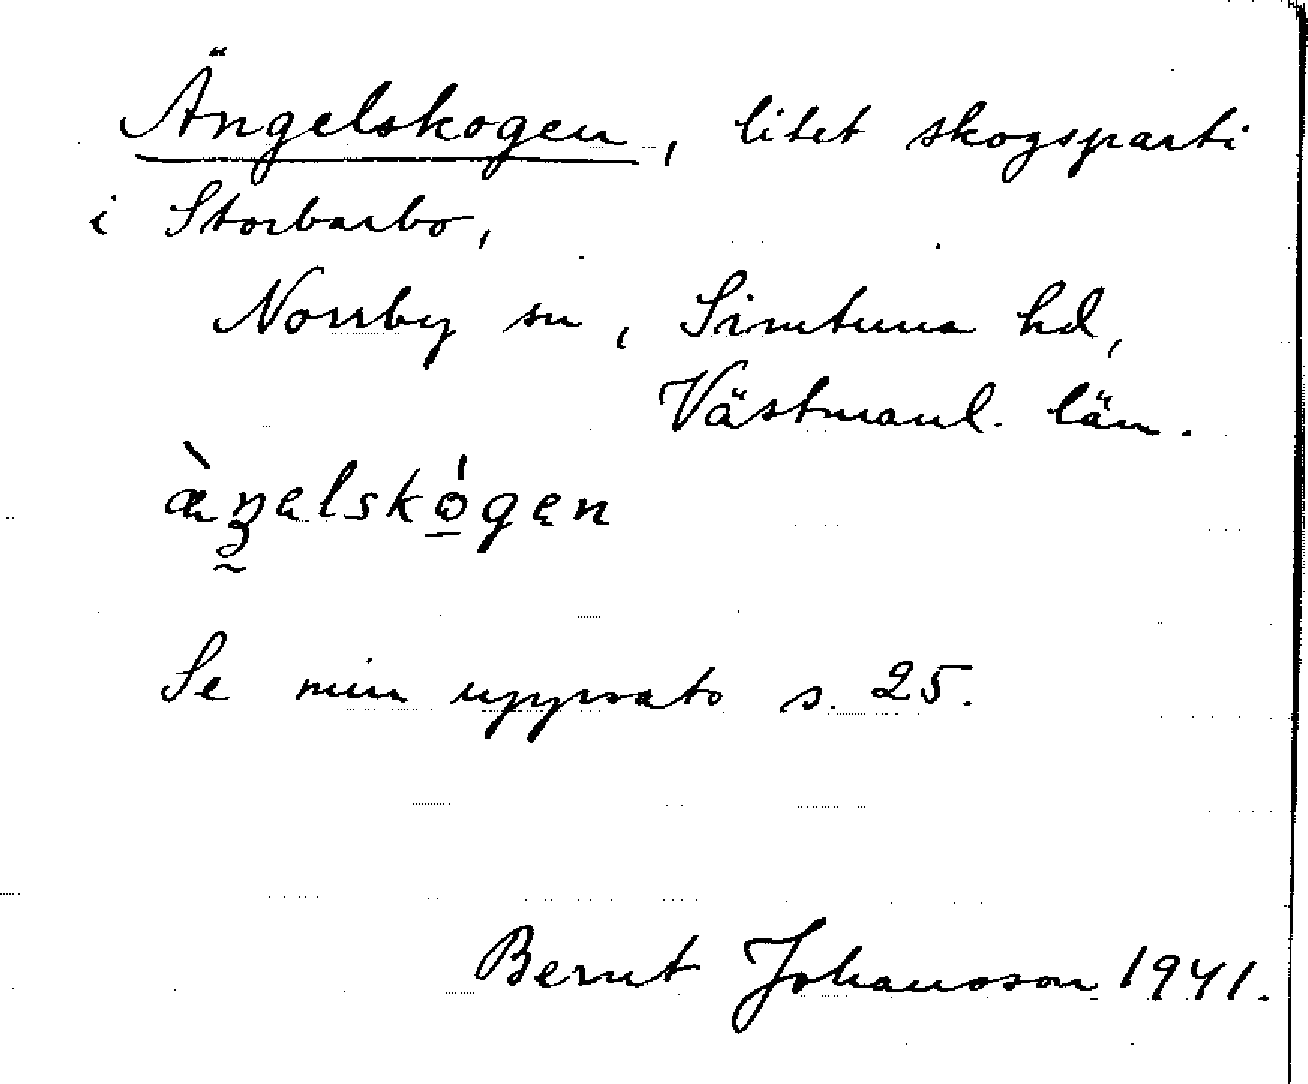 Ängelskogen, litet skogsparti
i Storbarbo,
Norrby sn, Simtuna hd,
Västmanl. län.
æ̀ŋelskógen
Se min uppsats s. 25.
Bernt Johansson 1941.